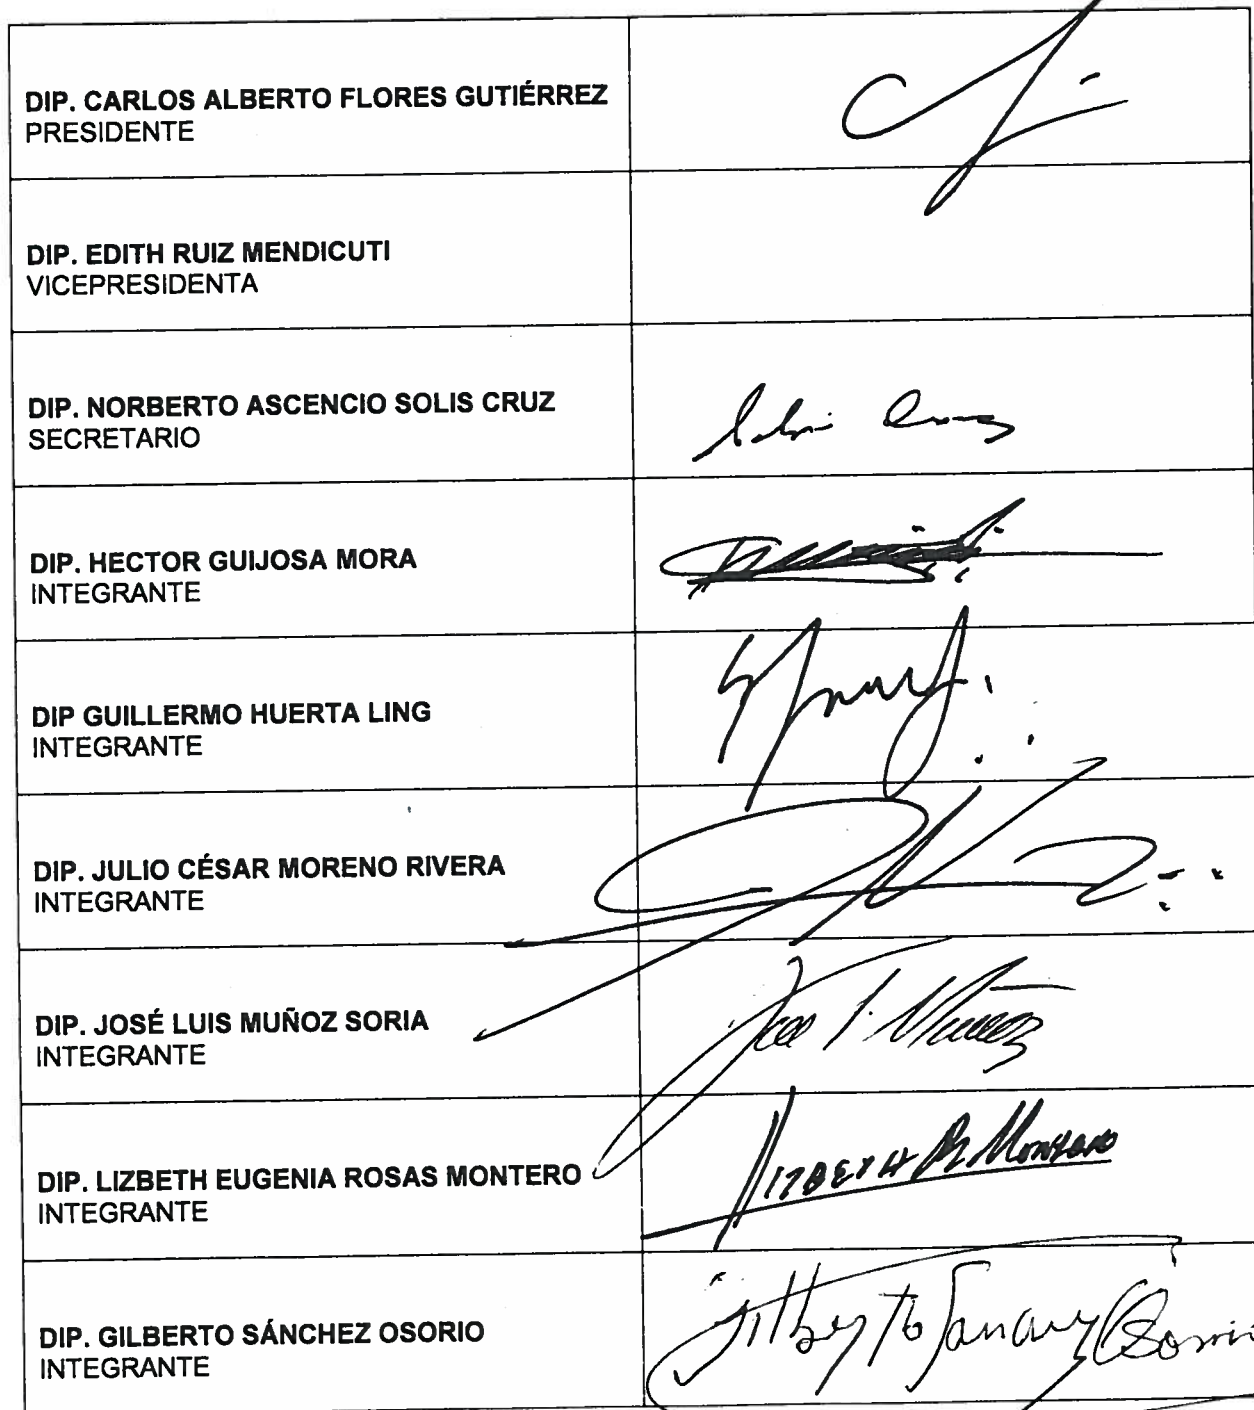 DIP. CARLOS ALBERTO FLORES GUTIÉRREZ
PRESIDENTE
DIP. EDITH RUIZ MENDICUTI
VICEPRESIDENTA
DIP. NORBERTO ASCENCIO SOLIS CRUZ
SECRETARIO
DIP. HECTOR GUIJOSA MORA
INTEGRANTE
DIP GUILLERMO HUERTA LING
INTEGRANTE
DIP. JULIO CÉSAR MORENO RIVERA
INTEGRANTE
DIP. JOSÉ LUIS MUÑOZ SORIA
INTEGRANTE
DIP. LIZBETH EUGENIA ROSAS MONTERO
INTEGRANTE
LIZBETH R. MONTERO
DIP. GILBERTO SÁNCHEZ OSORIO
INTEGRANTE